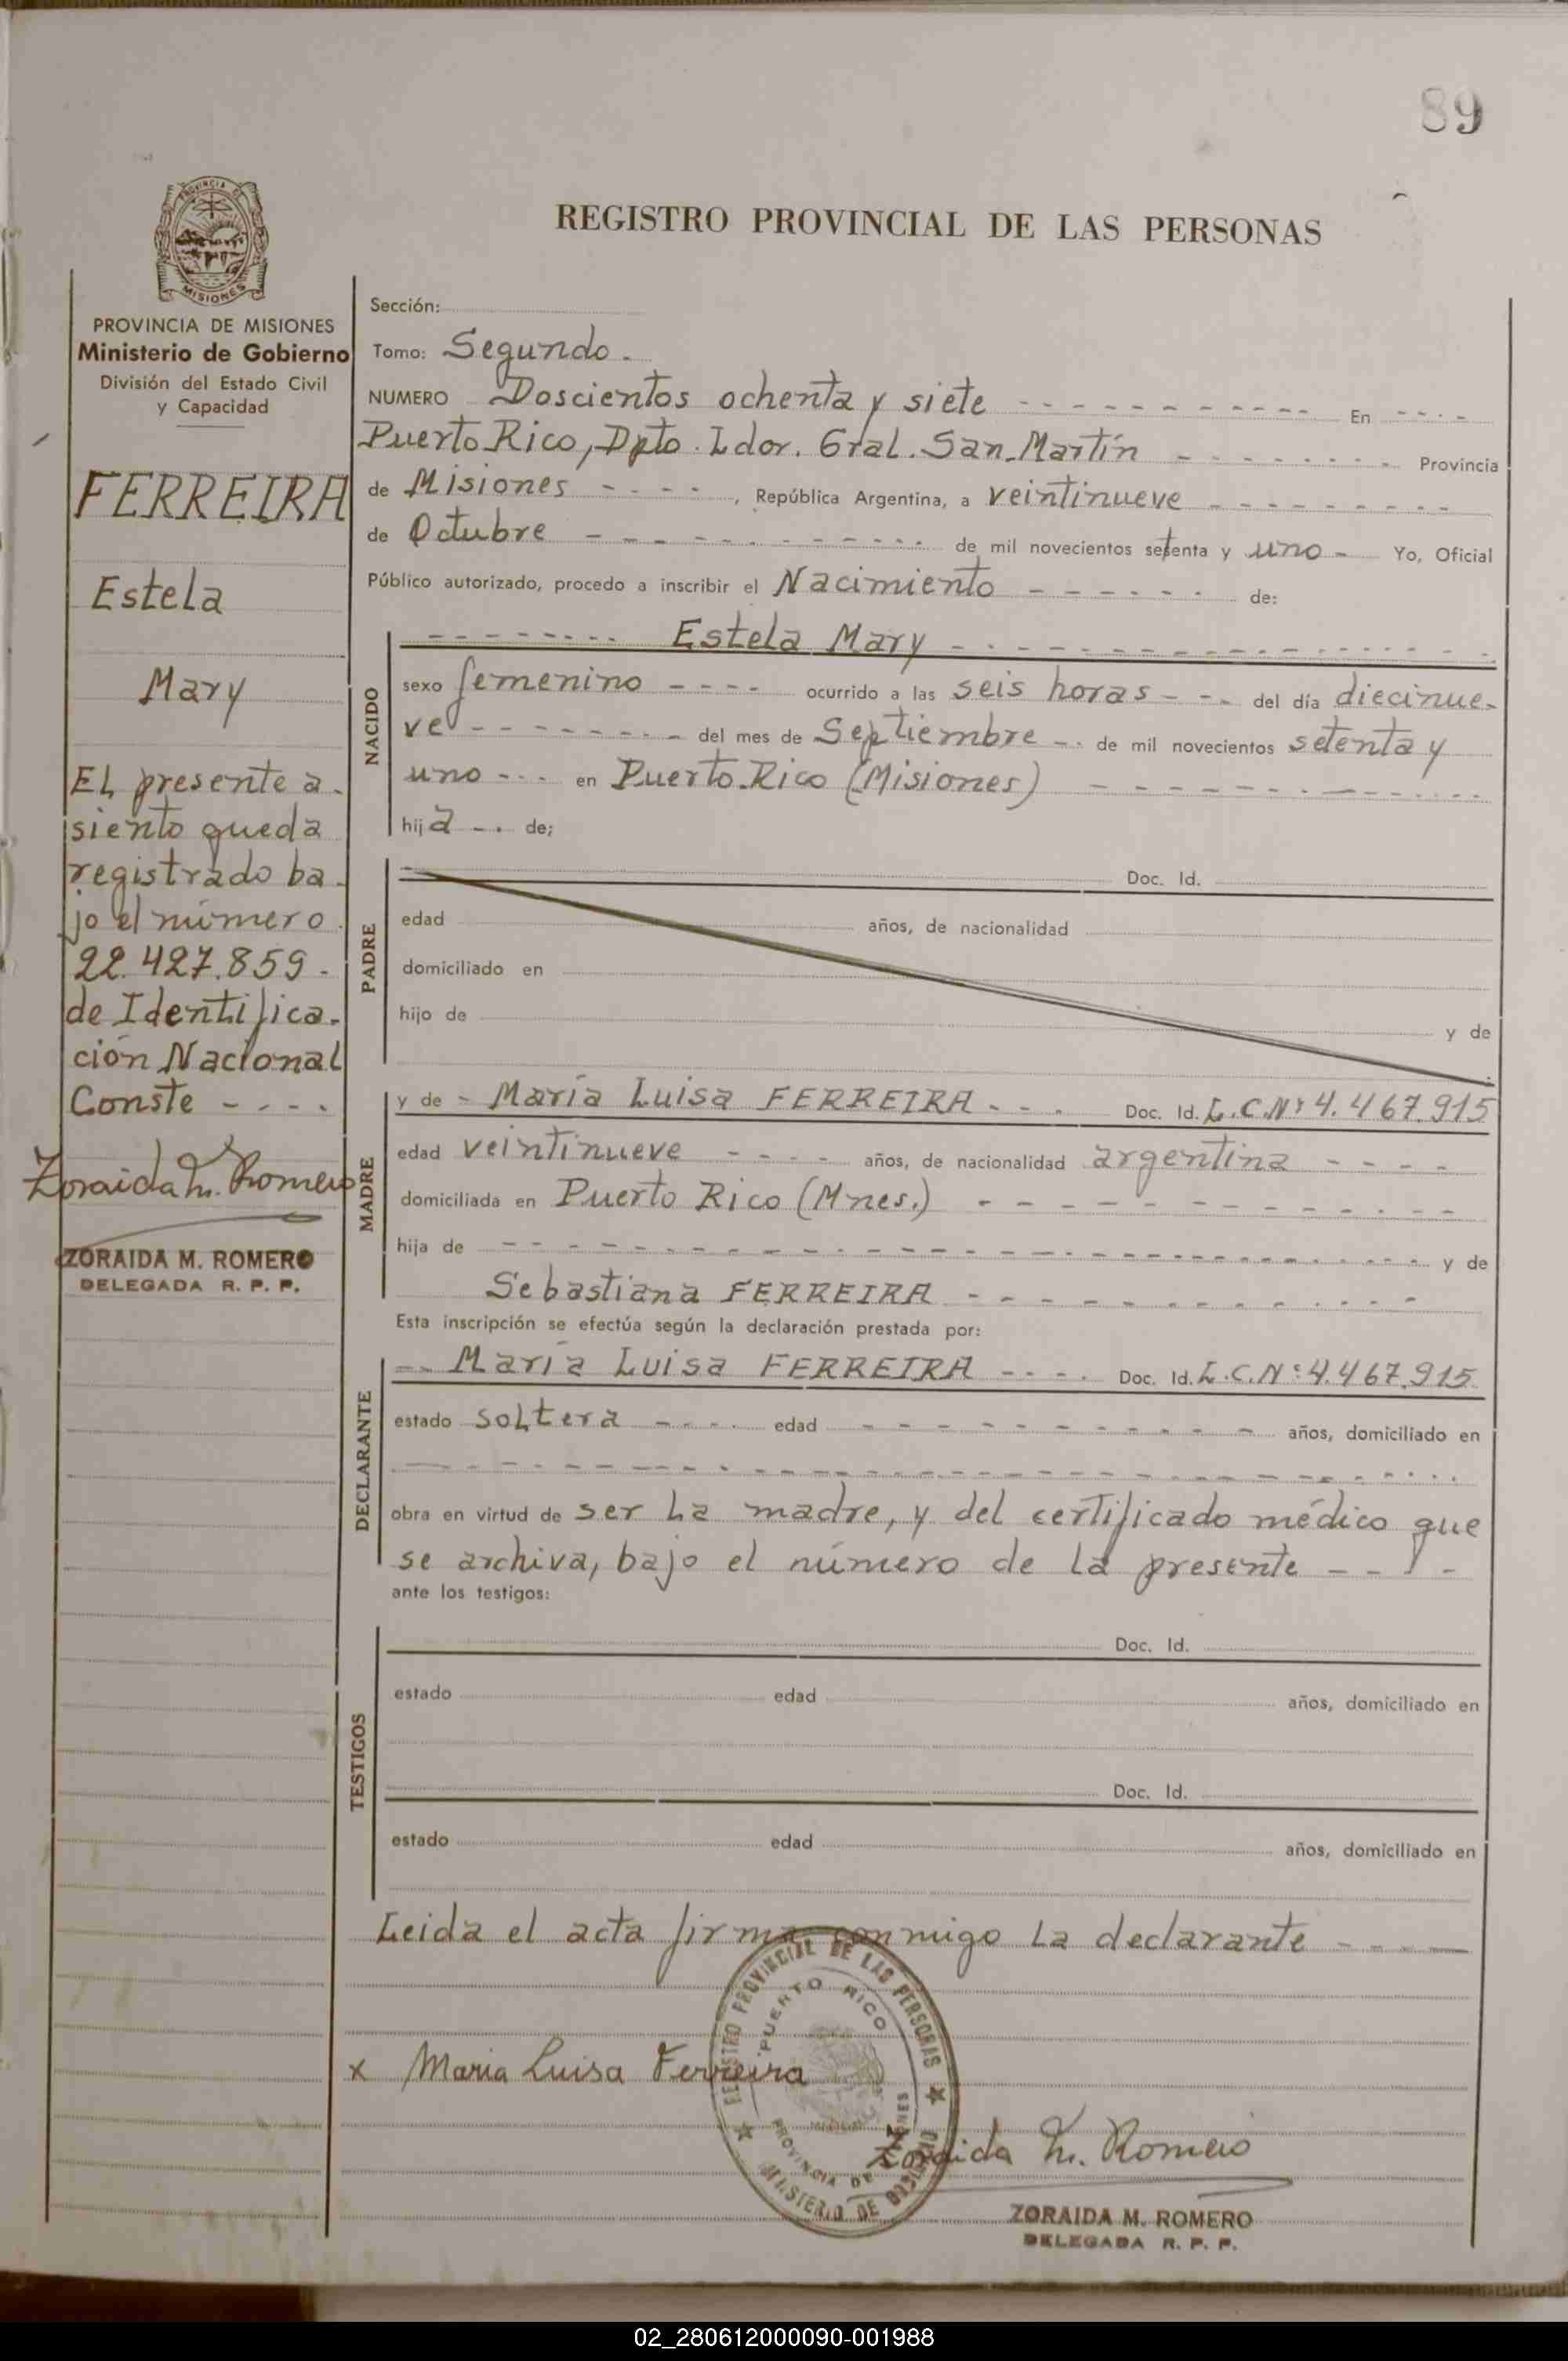 89
REGISTRO PROVINCIAL DE LAS PERSONAS
PROVINCIA DE
MISIONES
PROVINCIA DE MISIONES
Ministerio de Gobierno
División del Estado Civil
y Capacidad
FERREIRA
Estela
Mary
El presente a-
siento queda
registrado ba-
jo el número
22.427.859-
de Identifica-
ción Nacional
Conste - - - -
Zoraida M. Romero
ZORAIDA M. ROMERO
DELEGADA R. P. P.
Sección:
Tomo: Segundo.
NUMERO Doscientos ochenta y siete - - - En - - - -
Puerto Rico, Dpto. Ldor. Gral. San Martín - - - Provincia
de Misiones - - - -, República Argentina, a veintinueve - - -
de Octubre - - - de mil novecientos setenta y uno - Yo, Oficial
Público autorizado, procedo a inscribir el Nacimiento - - - de:
NACIDO
- - - Estela Mary - - -
sexo femenino - - - - ocurrido a las seis horas - - - del día diecinue-
ve - - - del mes de Septiembre - - de mil novecientos setenta y
uno - - - en Puerto Rico (Misiones) - - -
hija - - de;
PADRE
Doc. Id.
edad años, de nacionalidad
domiciliado en
hijo de y de
MADRE
y de - María Luisa FERREIRA - - - Doc. Id. L.C.Nº 4.467.915
edad veintinueve - - - - años, de nacionalidad argentina - - - -
domiciliada en Puerto Rico (Mnes.) - - -
hija de - - - y de
Sebastiana FERREIRA - - -
Esta inscripción se efectúa según la declaración prestada por:
DECLARANTE
- - María Luisa FERREIRA - - - - Doc. Id. L.C.Nº: 4.467.915
estado soltera - - - - edad - - - años, domiciliado en
- - -
obra en virtud de ser la madre, y del certificado médico que
se archiva, bajo el número de la presente - - - -
ante los testigos:
TESTIGOS
Doc. Id.
estado edad años, domiciliado en
Doc. Id.
estado edad años, domiciliado en
Leida el acta firma conmigo la declarante - - - -
REGISTRO PROVINCIAL DE LAS PERSONAS
PUERTO RICO
PROVINCIA DE MISIONES
MINISTERIO DE GOBIERNO
x Maria Luisa Ferreira
Zoraida M. Romero
ZORAIDA M. ROMERO
DELEGADA R. P. P.
02_280612000090-001988